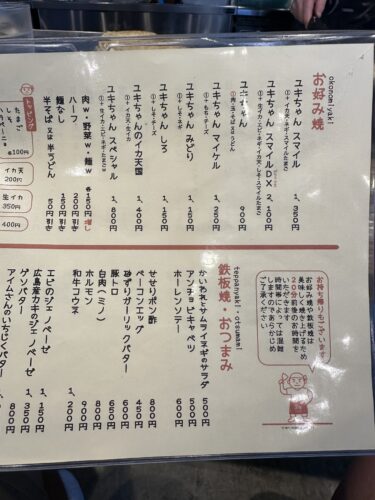 okonomiyaki
お好み焼
ユキちゃん スマイル 1,850円
①+イカ天・ネギ・スマイルたまご
ユキちゃん スマイルDX 2,100円
ユキちゃん 900円
①肉・玉・そば又はうどん
ユキちゃん マイケル 1,200円
①+もち・チーズ
ユキちゃん みどり 1,200円
①+しそ・ネギ
ユキちゃん しろ 1,150円
①+イカ・チーズ
ユキちゃんのイカ天国 1,400円
ユキちゃん スペシャル 1,800円
肉w・野菜w・麺w 各150円増し
ハーフ 200円引き
麺なし 150円引き
半そば又は半うどん 50円引き
トッピング
たまご
しそ
チーズ
各100円
イカ天
200円
生イカ
350円
400円
お持ち帰りもございます!
お好み焼や鉄板焼は
美味しく焼き上げるため
20分前後のお時間を
いただきます
時間帯によっては混雑
しますのであらかじめ
ご了承ください
teppanyaki・otsumami
鉄板焼・おつまみ
かいわれとサムライネギのサラダ 500円
アンチョビキャベツ 500円
ホーレンソテー 600円
せせりポン酢 800円
ベーコンエッグ 450円
砂ずりガーリックバター 600円
豚トロ 650円
白肉(ミノ) 850円
ホルモン 900円
和牛コウネ 1,200円
エビのジェノベーゼ 1,150円
広島産カキのジェノベーゼ 1,350円
ゲソバター
アイムさんのいちじくバター